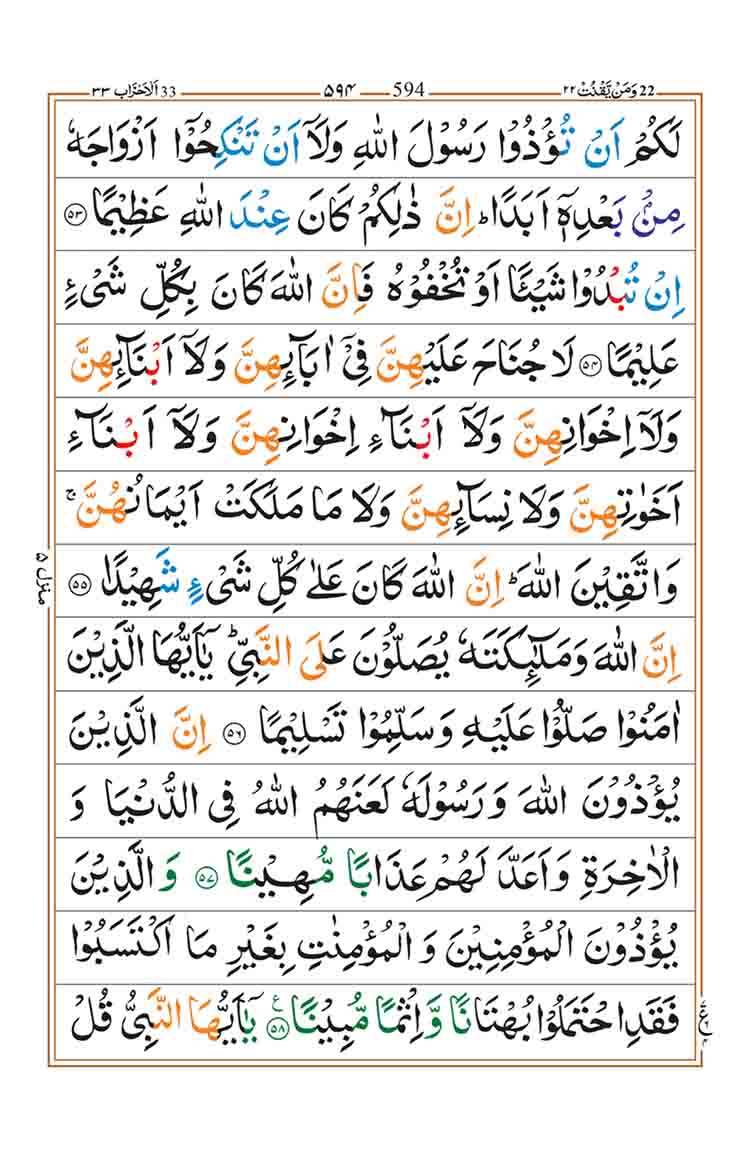 22 وَمَنْ يَّقْنُتْ ۲۲ 594 ۵۹۴ 33 اَلْاَحْزَاب ۳۳
لَكُمْ اَنْ تُؤْذُوْا رَسُوْلَ اللّٰهِ وَلَاۤ اَنْ تَنْكِحُوْۤا اَزْوَاجَهٗ
مِنْۢ بَعْدِهٖۤ اَبَدًا ؕ اِنَّ ذٰلِكُمْ كَانَ عِنْدَ اللّٰهِ عَظِيْمًا ۝۵۳
اِنْ تُبْدُوْا شَيْـًٔا اَوْ تُخْفُوْهُ فَاِنَّ اللّٰهَ كَانَ بِكُلِّ شَیْءٍ
عَلِيْمًا ۝۵۴ لَا جُنَاحَ عَلَيْهِنَّ فِیْۤ اٰبَآئِهِنَّ وَلَاۤ اَبْنَآئِهِنَّ
وَلَاۤ اِخْوَانِهِنَّ وَلَاۤ اَبْنَآءِ اِخْوَانِهِنَّ وَلَاۤ اَبْنَآءِ
اَخَوٰتِهِنَّ وَلَا نِسَآئِهِنَّ وَلَا مَا مَلَكَتْ اَيْمَانُهُنَّ ۚ
وَاتَّقِيْنَ اللّٰهَ ؕ اِنَّ اللّٰهَ كَانَ عَلٰى كُلِّ شَیْءٍ شَهِيْدًا ۝۵۵
منزل ۵
اِنَّ اللّٰهَ وَمَلٰٓئِكَتَهٗ يُصَلُّوْنَ عَلَى النَّبِیِّ ؕ يٰۤاَيُّهَا الَّذِيْنَ
اٰمَنُوْا صَلُّوْا عَلَيْهِ وَسَلِّمُوْا تَسْلِيْمًا ۝۵۶ اِنَّ الَّذِيْنَ
يُؤْذُوْنَ اللّٰهَ وَرَسُوْلَهٗ لَعَنَهُمُ اللّٰهُ فِی الدُّنْيَا وَ
الْاٰخِرَةِ وَاَعَدَّ لَهُمْ عَذَابًا مُّهِيْنًا ۝۵۷ وَالَّذِيْنَ
يُؤْذُوْنَ الْمُؤْمِنِيْنَ وَ الْمُؤْمِنٰتِ بِغَيْرِ مَا اكْتَسَبُوْا
فَقَدِ احْتَمَلُوْا بُهْتَانًا وَّاِثْمًا مُّبِيْنًا ۝۵۸ يٰۤاَيُّهَا النَّبِیُّ قُلْ